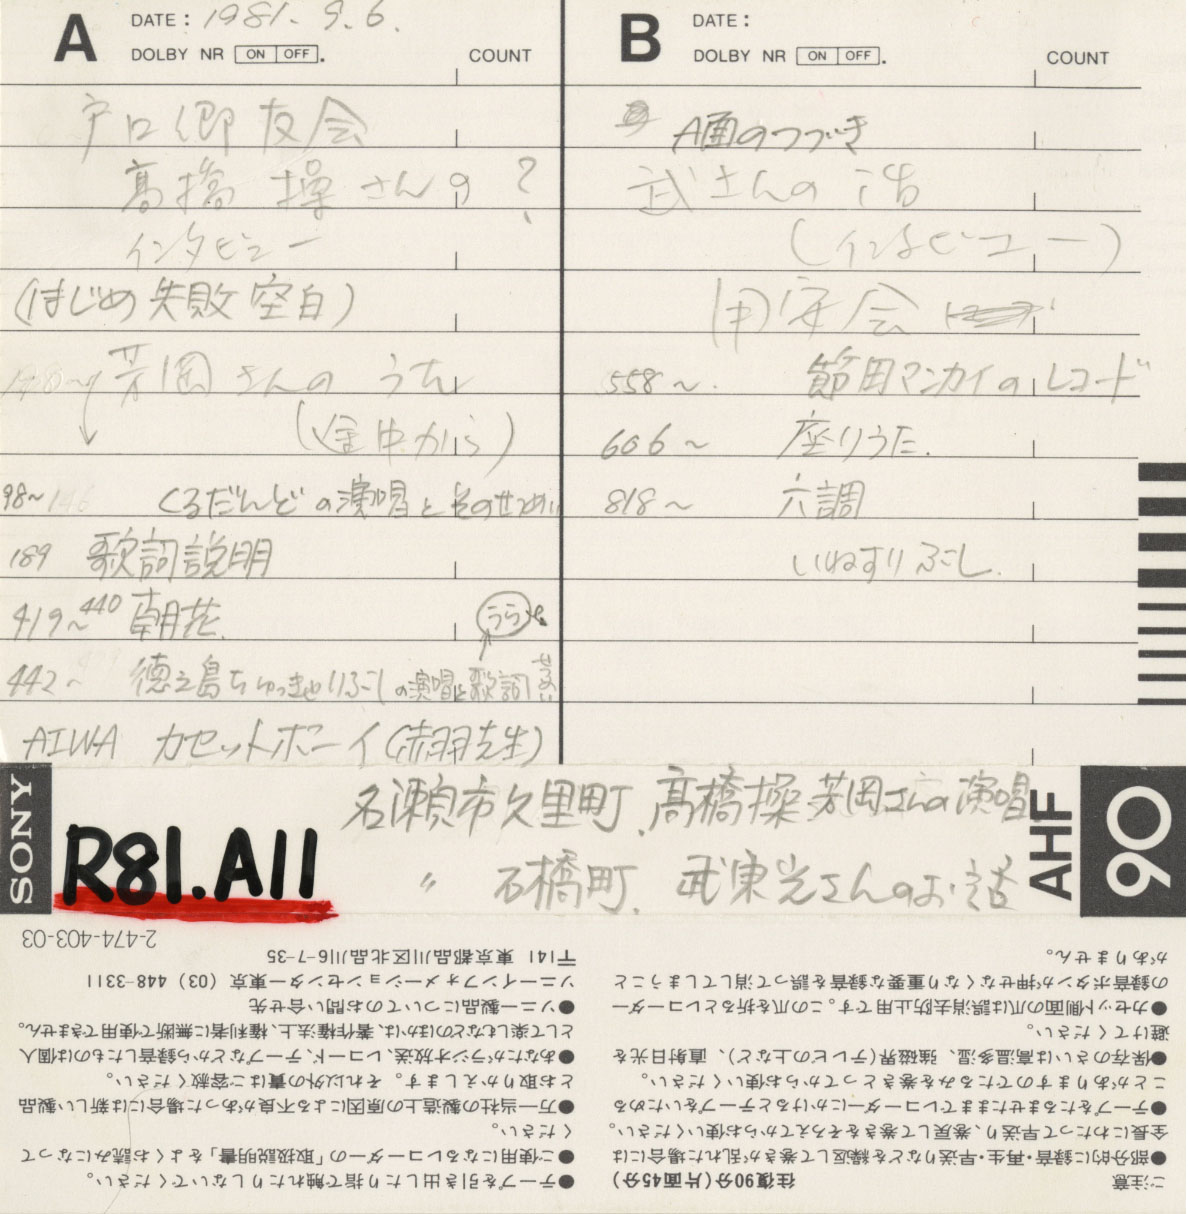 A
DATE: 1981.9.6.
DOLBY NR ON OFF.
COUNT
戸口郷友会
高橋 操さんの ?
インタビュー
(はじめ失敗空白)
芳岡さんの うた
(途中から)
98~ くるだんどの演唱とそのせつめい
189 歌詞説明
419~440 朝花
うらも
442~ 徳之島ちゅっきゃりぶしの演唱と歌詞
AIWA カセットボーイ(赤羽先生)
B
DATE:
DOLBY NR ON OFF.
COUNT
A面のつづき
武さんの 話
(インタビュー)
558~. 節田マンカイのレコード
606~ 座りうた.
818~ 六調
いねすりぶし.
SONY
R81.A11
名瀬市久里町、高橋操、芳岡さんの演唱
〃 石橋町、武東光さんのお話
AHF
90
ご注意
往復90分(片面45分)
●部分的に録音・再生・早送りなどを繰返して巻きが乱れた場合には
全長にわたって早送り、巻戻して巻きをそろえてからお使いください。
●テープをたるませたままでレコーダーにかけるとテープをいためる
ことがありますのでたるみを巻きとってからお使いください。
●保存のさいは高温多湿、強磁界(テレビの上など)、直射日光を
避けてください。
●カセット側面の爪は誤消去防止用です。この爪を折るとレコーダー
の録音ボタンが押せなくなり重要な録音を誤って消してしまうこと
がありません。
●テープを引き出したり指で触れたりしないでください。
●ご使用になるレコーダーの「取扱説明書」をよくお読みになって
ください。
●万一当社の製造上の原因による不良があった場合には新しい製品
とお取りかえします。それ以外の責はご容赦ください。
●あなたがラジオ放送、レコード、テープなどから録音したものは個人
として楽しむなどのほかは、著作権法上、権利者に無断で使用できません。
●ソニー製品についてのお問い合せ先
ソニーインフォメーションセンター東京 (03) 448-3311
〒141 東京都品川区北品川6-7-35
2-474-403-03